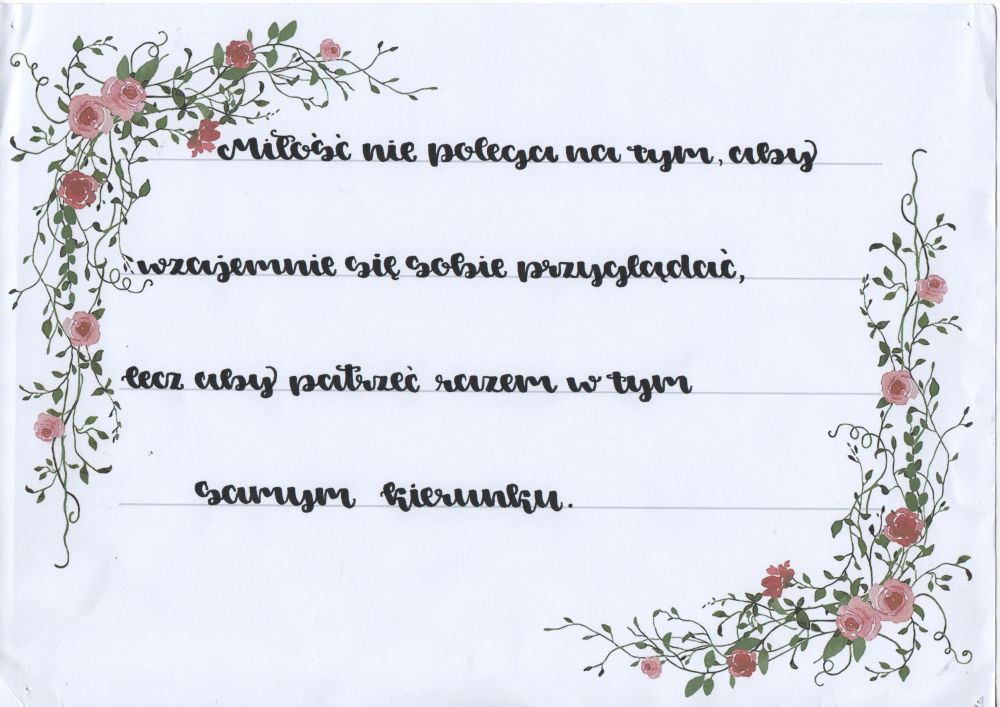 Miłość nie polega na tym, aby
wzajemnie się sobie przyglądać,
lecz aby patrzeć razem w tym
samym kierunku.